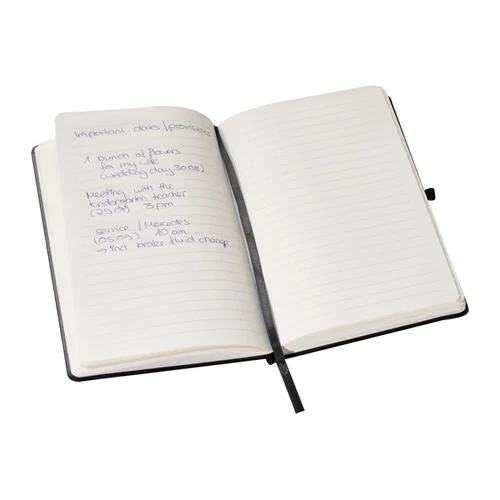 Important dates / provisions
1 bunch of flowers
for my wife
(wedding day 30.08)
Meeting with the
kindergarten teacher
(29.09) 3 pm
Service / Mercedes
(05.09) 10 am
→ incl. brake fluid change